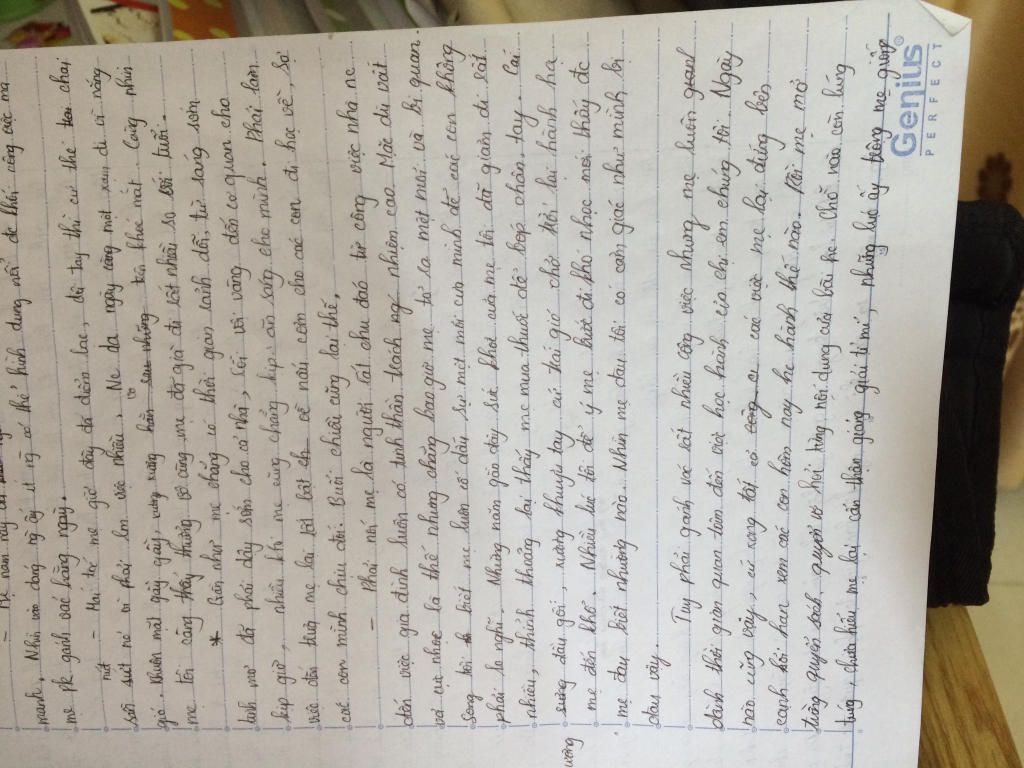 - Mẹ năm nay
mảnh. Nhìn vào dáng ng ấy ít ng có thể hình dung nổi đc khối công việc mà
mẹ pk gánh vác hằng ngày.
- Mái tóc mẹ giờ đây đã điểm bạc, đôi tay thì cứ thế chai
nứt vì
sần vì phải làm việc nhiều. Nc da ngày càng một xạm đi vì nắng
gió. Khuôn mặt gầy gầy, cùng xương hằn sau những tên khóe mắt. Càng nhìn
mẹ tôi càng thấy thương vô cùng, mẹ đã già đi rất nhiều so với tuổi.
* Gần như mẹ chẳng có thời gian rảnh dỗi, từ sáng sớm
tinh mơ đã phải dậy sớm cho cả nhà, rồi vội vàng đến cơ quan cho
kịp giờ, nhiều khi mẹ cũng chẳng kịp ăn sáng cho mình. Phải làm
việc đến trưa mẹ lại tất bật ch về nấu cơm cho các con đi học về, sợ
các con mình chịu đói. Buổi chiều cũng lại thế.
- Phải nói mẹ là người rất chu đáo từ công việc nhà nc
đến việc gia đình luôn có tinh thần trách ng nhiệm cao. Mặc dù vất
vả cực nhọc là thế nhưng chẳng bao giờ mẹ tỏ ra mệt mỏi và bi quan.
Song tôi biết mẹ luôn cố dấu sự mệt mỏi của mình để các con không
phải lo nghĩ. Những năm gần đây sức khỏe của mẹ tôi đã giảm đi rất
nhiều, thỉnh thoảng lại thấy mẹ mua thuốc để bóp chân, tay. Cái
xương đầu gối, xương khuỷu tay cứ trái gió chở trời lại hành hạ
mẹ đến khổ. Nhiều lúc tôi để ý mẹ bước đi khó nhọc mới thấy đc
mẹ đau biết nhường nào. Nhìn mẹ đau tôi có cảm giác như mình bị
đau vậy.
Tuy phải gánh vác rất nhiều công việc nhưng mẹ luôn
dành thời gian quan tâm đến việc học hành của chị em chúng tôi. Ngày
nào cũng vậy, cứ xong tất cả các việc mẹ lại đứng bên
cạnh hỏi han xem các con hôm nay học hành thế nào. Rồi mẹ mở
từng quyển sách quyển vở hỏi từng nội dung của bài học. Chỗ nào còn lúng
túng, chưa hiểu mẹ lại cẩn thận giảng giải tỉ mỉ, những lúc ấy trông mẹ giống
Genius®
PERFECT